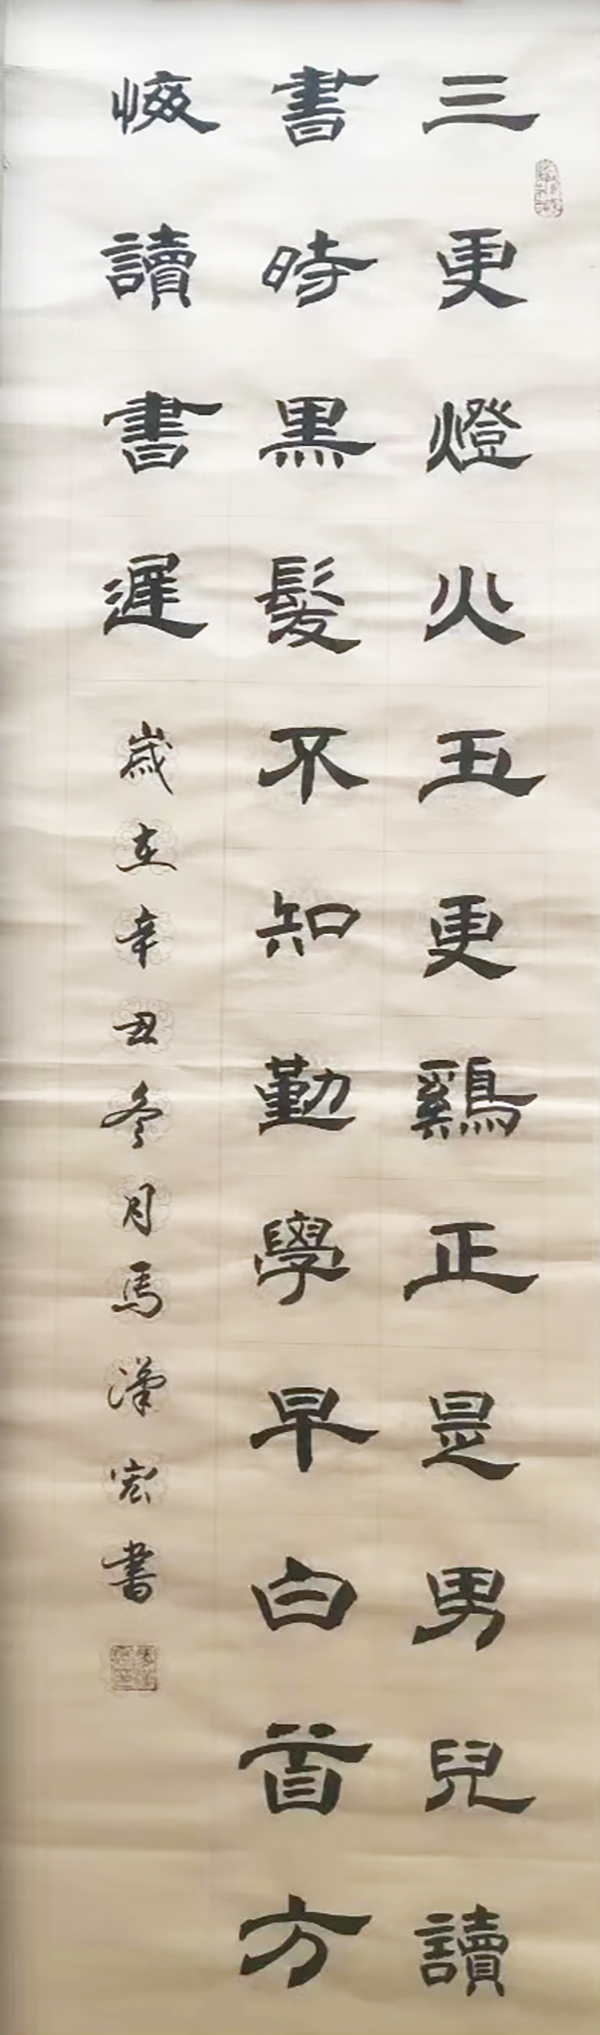 三更燈火五更鷄正是男兒讀
書時黑髮不知勤學早白首方
悔讀書遲
歲在辛丑冬月馬漢宏書